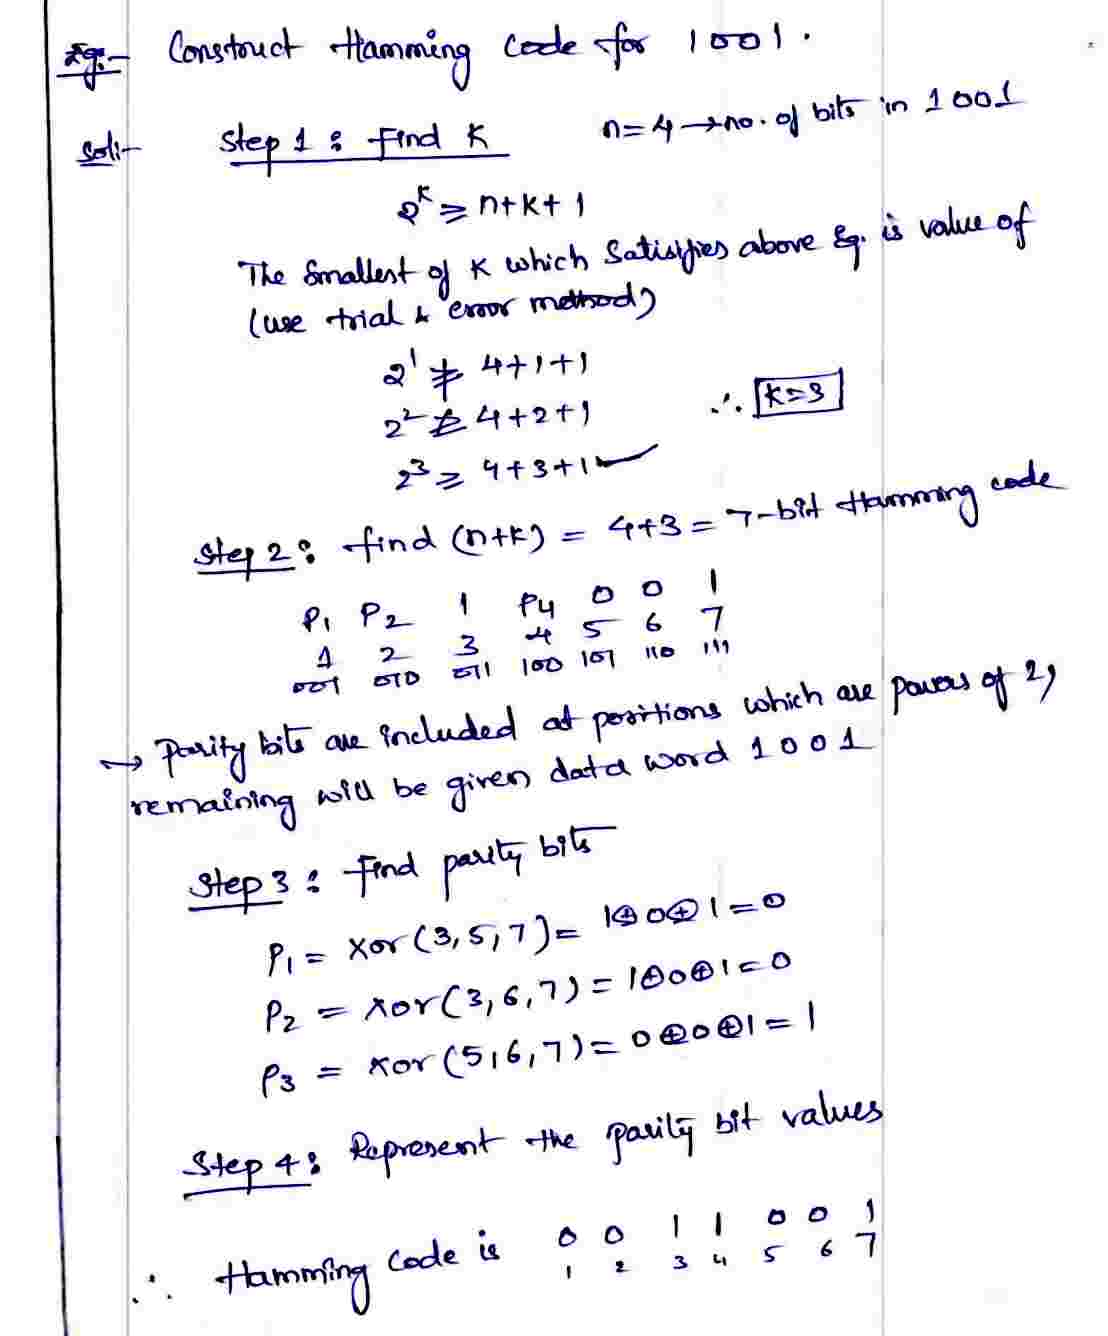 Eg:- Construct Hamming Code for 1001.
Sol:- Step 1: Find K n=4→no. of bits in 1001
2^K ≥ n+k+1
The Smallest of K which Satisfies above Eq. is value of
(use trial & error method)
2^1 ≱ 4+1+1
2^2 ≱ 4+2+1 ∴ K=3
2^3 ≥ 4+3+1 ✓
Step 2: find (n+k) = 4+3 = 7-bit Hamming code
P1 P2 1 P4 0 0 1
1 2 3 4 5 6 7
001 010 011 100 101 110 111
→ Parity bits are included at positions which are powers of 2,
remaining will be given data word 1001
Step 3: Find parity bits
P1 = xor(3,5,7) = 1⊕0⊕1=0
P2 = xor(3,6,7) = 1⊕0⊕1=0
P3 = xor(5,6,7) = 0⊕0⊕1=1
Step 4: Represent the parity bit values
∴ Hamming Code is 0 0 1 1 0 0 1
1 2 3 4 5 6 7